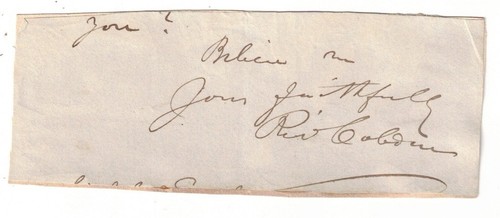 you?
Believe me
Yours faithfully
Rd Cobden